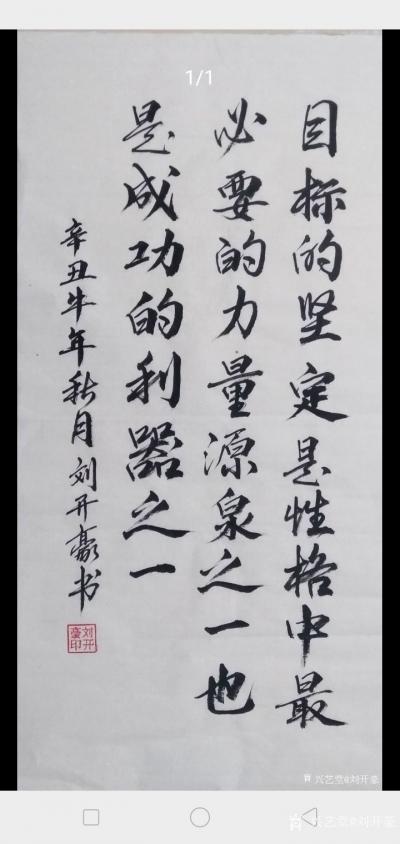 1/1
目标的坚定是性格中最
必要的力量源泉之一也
是成功的利器之一
辛丑牛年秋月刘开豪书
刘开豪印
兴艺堂@刘开豪
兴艺堂@刘开豪